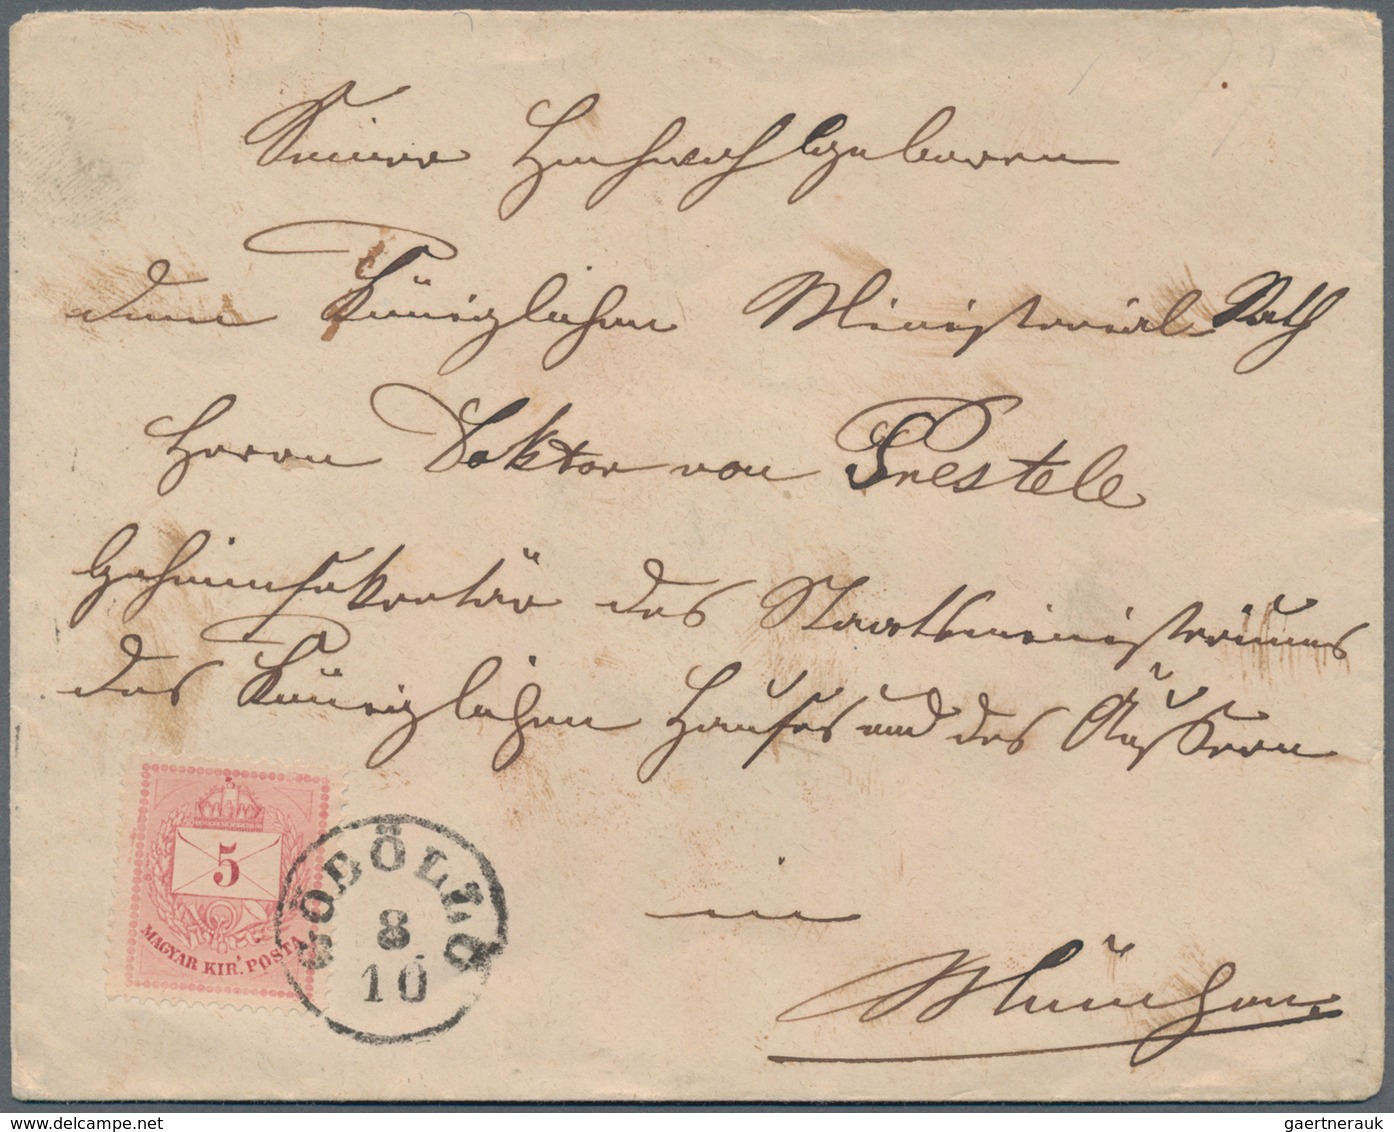 Seiner Hochwohlgeboren
dem Königlichen Ministerial Rath
Herrn Doktor von Prestele
Geheimsekretär des Staatsministeriums
des Königlichen Hauses und des Äußern
in
München.
5
MAGYAR KIR. POSTA
GÖDÖLLŐ
8
10
www.delcampe.net
gaertnerauk